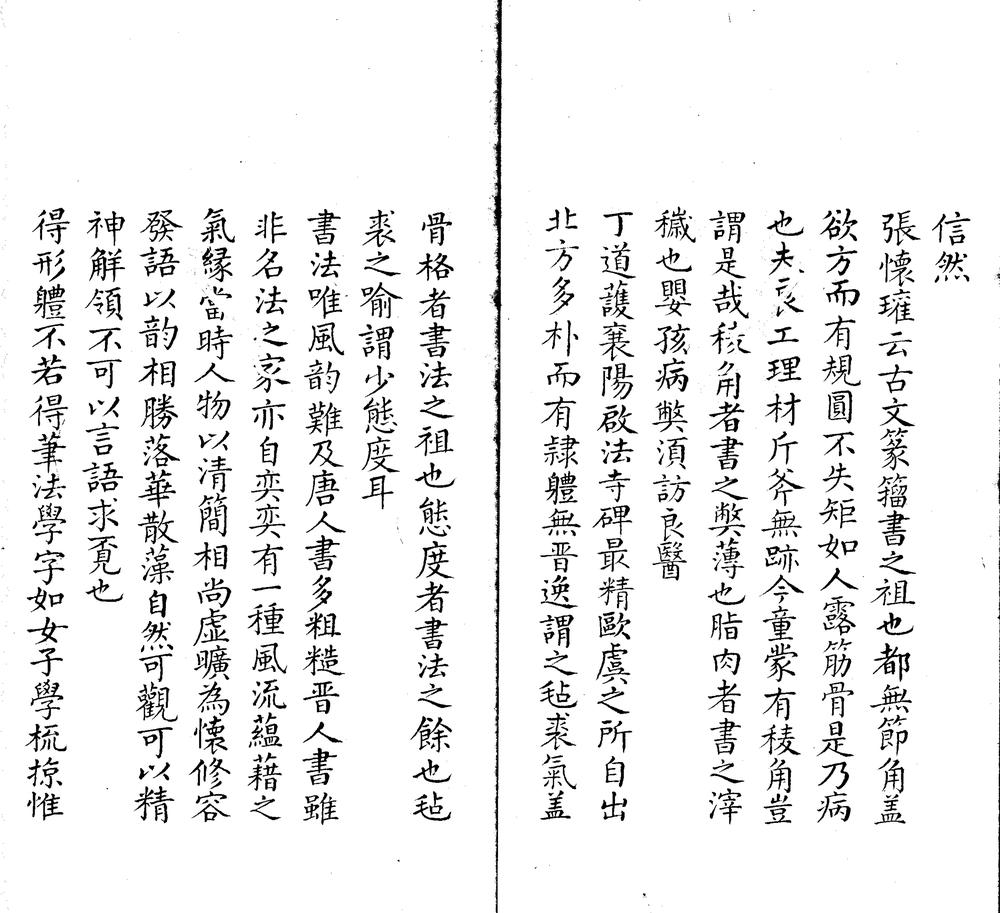 信然
張懷瓘云古文篆籀書之祖也都無節角盖
欲方而有規圓不失矩如人露筋骨是乃病
也夫良工理材斤斧無跡今童蒙有稜角豈
謂是哉稜角者書之弊薄也脂肉者書之滓
穢也嬰孩病弊湏訪良醫
丁道護襄陽啟法寺碑最精歐虞之所自出
北方多朴而有隷體無晋逸謂之毡裘氣盖
骨格者書法之祖也態度者書法之餘也毡
裘之喻謂少態度耳
書法唯風韵難及唐人書多粗糙晋人書雖
非名法之家亦自奕奕有一種風流蘊藉之
氣緣當時人物以清簡相尚虛曠為懷修容
發語以韵相勝落華散藻自然可觀可以精
神解領不可以言語求覔也
得形體不若得筆法學字如女子學梳掠惟